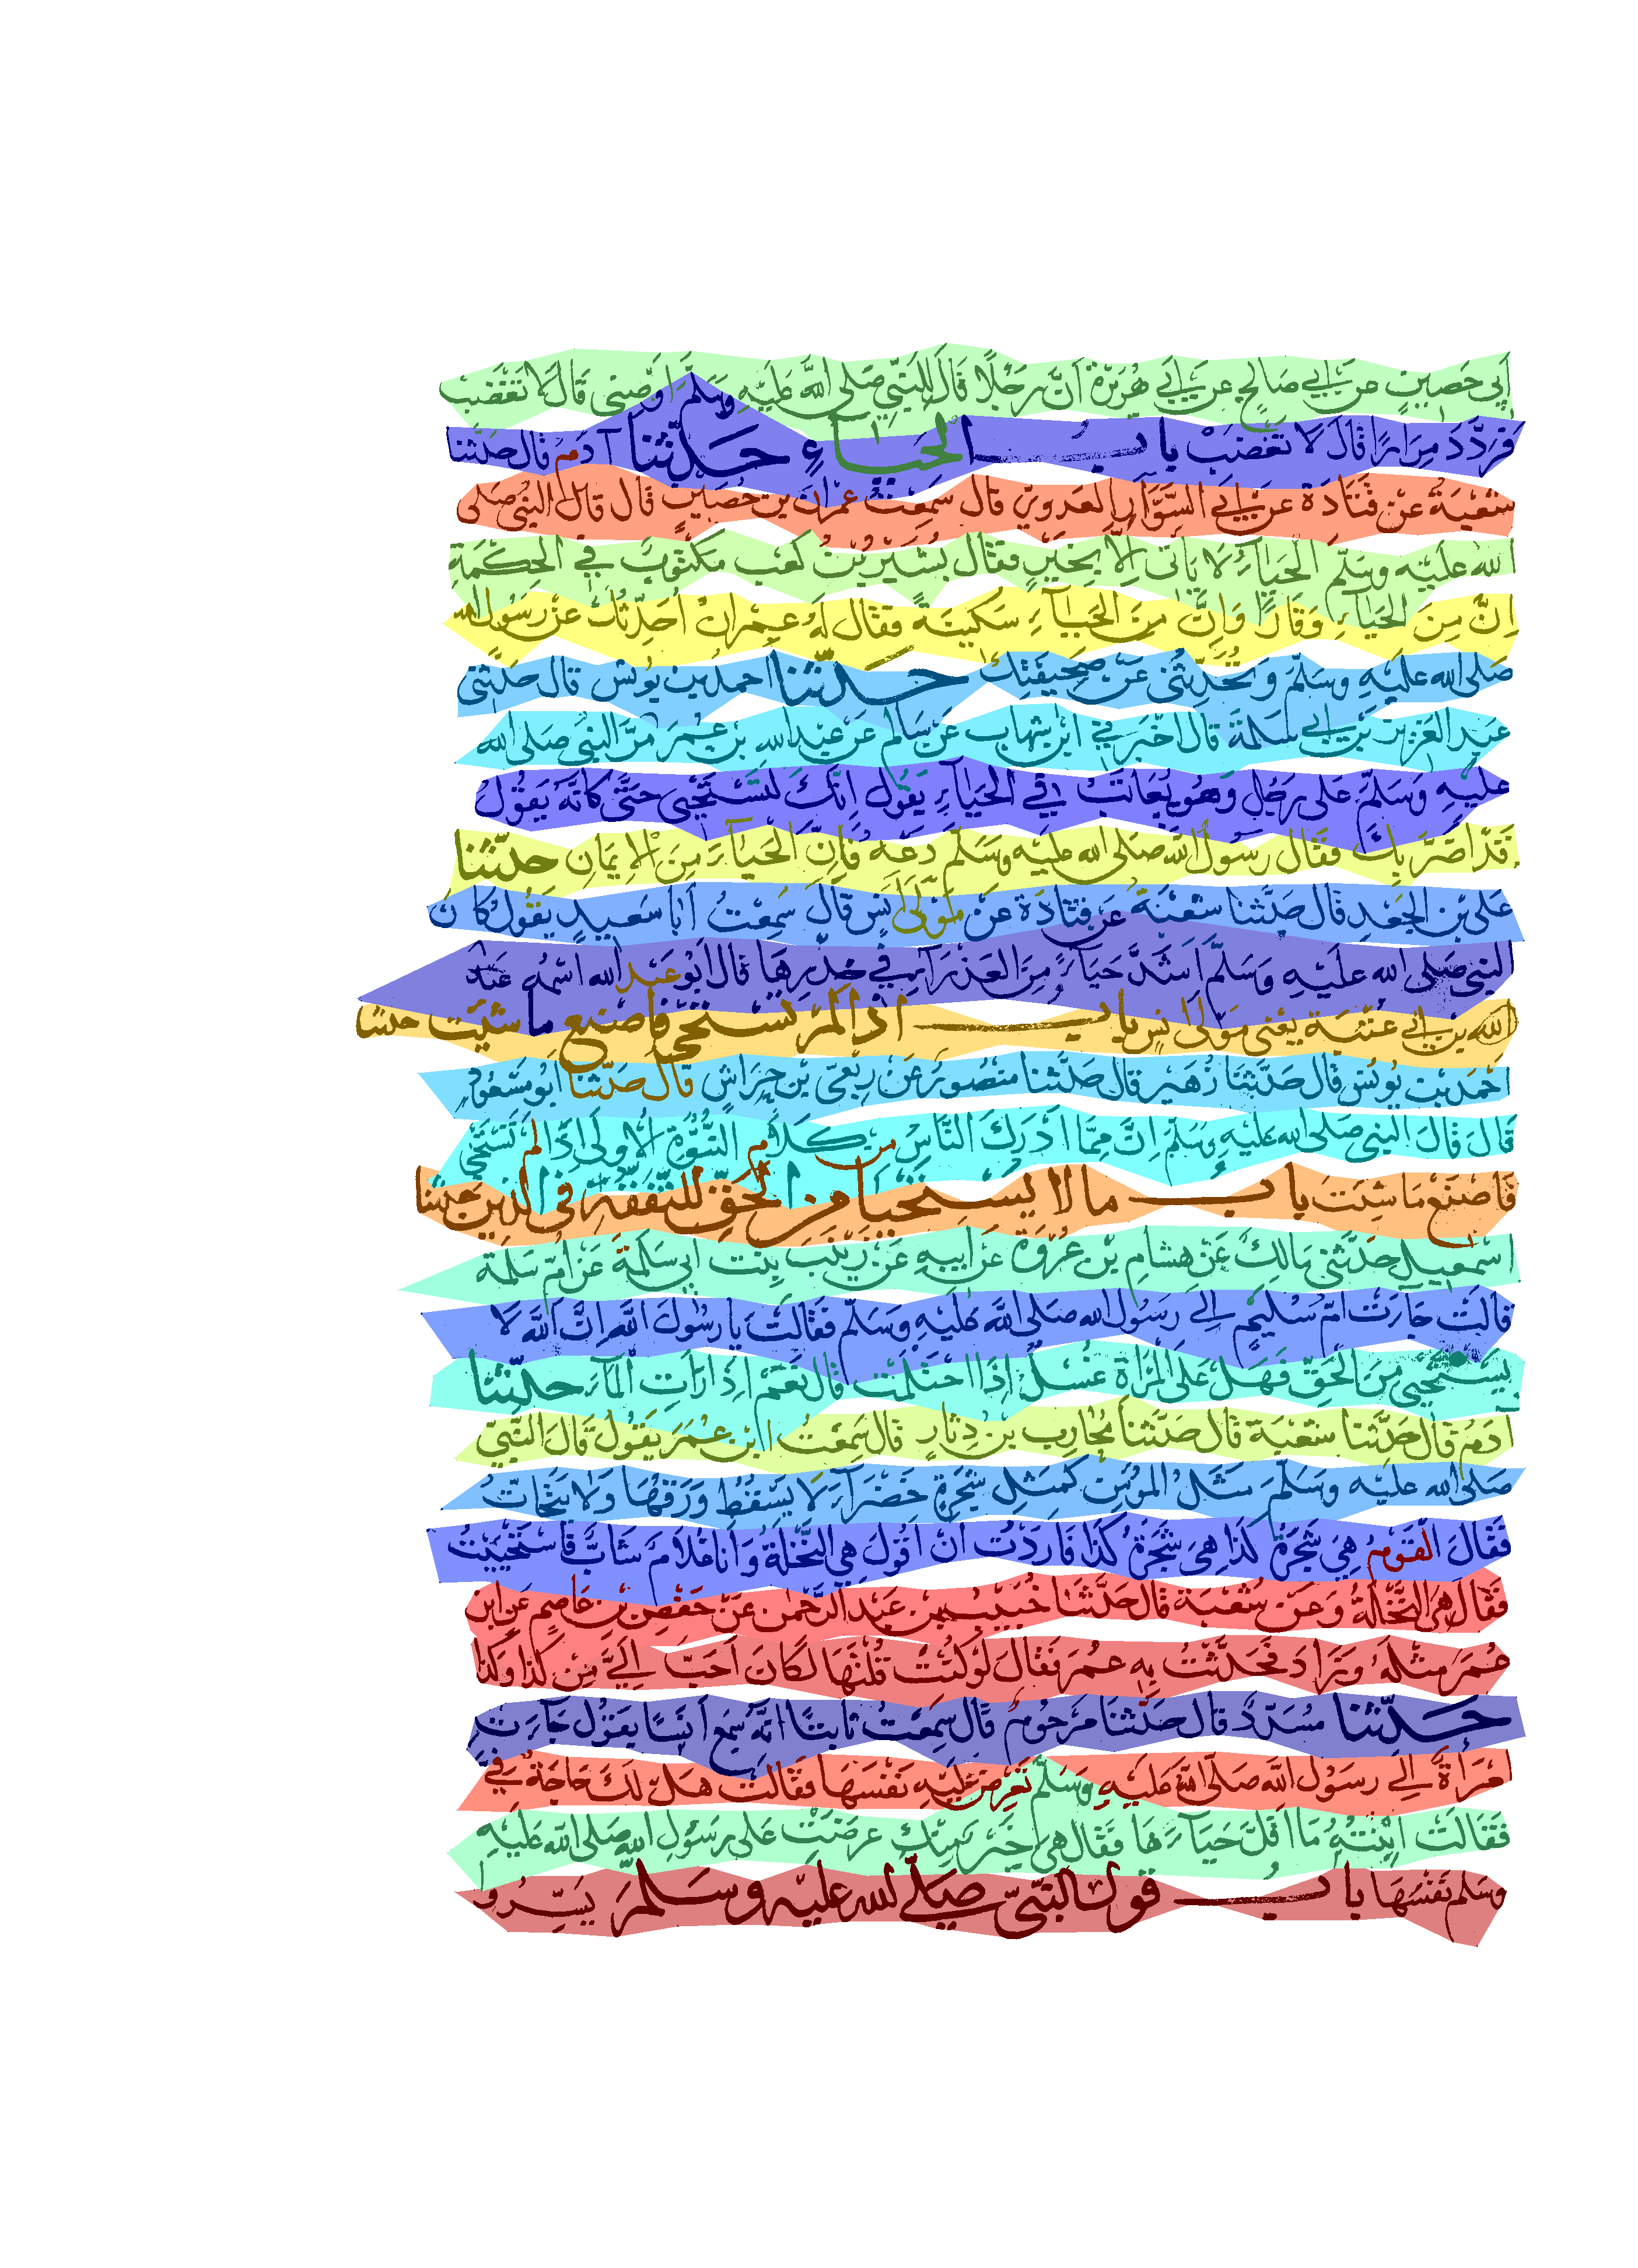 أبي حَصِين عن أبي صَالح عن أبي هُريرة أنَّ رجلًا قَالَ للنّبيّ صَلى اللَّه عَليْه وسَلّمَ اوصِنى قَالَ لا تغضَب
فردَّدَ مِرَارًا قالَ لا تغضبْ باب الحيَاءِ حَدثنا آدَمُ قال حدّثنا
شعْبَةُ عَنْ قتَادَةَ عن أبي السَّوَّارِ العَدويّ قال سَمِعْتُ عِمْرانَ بن حُصَيْنٍ قَال قالَ النبي صَلى
الله عليْه وسَلّم الحيَاءُ لا يَأتى إلّا بخيْرٍ فقال بُشَيْرُ بْنُ كعْب مكتوبٌ في الحِكمَةِ
اِنّ مِنَ الحيَاءِ وَقارًا وَاِنَّ مِنَ الحيَاءِ سَكينَةً فقال لَهُ عِمْرانُ أحَدّثُكَ عَنْ رَسُولِ الله
صَلى الله عليْهِ وسَلّم وَتُحَدّثنى عَنْ صَحيفَتِكَ حَدّثنا احمدُ بن يُونسَ قال حَدّثنى
عَبْد العَزيز بن أبي سَلمة قال اخْبَرَني ابن شِهاب عَنْ سَالم عَنْ عَبْد الله بن عُمَرَ مرّ النبيُّ صَلى الله
عليْهِ وَسَلّمَ عَلى رَجُلٍ وَهُو يُعَاتَبُ في الحَيَاءِ يَقُول اِنّكَ لتَسْتَحْيى حَتَّى كانّه يَقُولُ
قَدْ اَضَرَّ بِكَ فقال رسُول اللَّه صَلى الله عليْه وسَلّم دَعْهُ فَاِنَّ الحَيَاءَ مِنَ الإيمَانِ حدثنا
عَلى بن الجَعدِ قال حدّثنا شعْبَةُ عَن قتَادَة عَنْ مَوْلَى انَس قَالَ سَمِعْتُ اَبا سَعيدٍ يَقُول كَان
النبى صَلى الله عليْهِ وَسَلّم اَشَدَّ حَيَاءً مِنَ العَذرَاءِ في خِدْرِهَا قال ابُو عَبْد الله اسْمُه عَبْد
الله بن أبي عُتْبَة يعْنى مَوْلَى انس باب اذا لمْ تسْتَحْي فَاصْنع ما شئت حدثنا
احْمَد بن يُونسَ قال حَدّثنَا زُهَير قال حَدّثنا منصُورٌ عَنْ رِبْعىّ بْن حِرَاشٍ قال حَدّثنا ابُو مسْعُودٍ
قالَ قَالَ النبى صَلى الله عليْهِ وسَلّم اِنّ مِمَّا اَدْرَكَ النّاسُ مِن كَلَامِ النُّبُوَّةِ الاولَى اِذَا لَم تَسْتَحْي
فَاصْنَعْ مَا شِئتَ باب ما لا يُسْتَحْيَا مِن الحَقِّ للتَّفَقّهِ فى الدّين حدثنا
اسْمعيل حَدّثنى مَالِكٌ عَنْ هشامِ بْن عُرْوَةَ عَن ابيهِ عَنْ زَيْنَبَ بِنْت ابى سَلمَةَ عَنْ امّ سَلَمَة
قالتْ جَاءَت امّ سُليْمٍ إلى رسُول الله صَلى اللَّه عَليْهِ وَسَلّم فقالت يا رسُولَ اللَّه اِنَّ اللَّه لا
يسْتَحْيى مِنَ الحَقّ فهَلْ عَلَى المرْاَةِ غُسْلٌ اِذَا احتلَمَت قال نَعَمْ اِذا رَات الماءَ حدّثنا
آدَمُ قال حدّثنا شعْبَة قال حَدّثنا مُحارِب بن دِثارٍ قال سَمِعْتُ ابن عُمَرَ يَقُولُ قالَ النّبيّ
صَلى الله عليْه وسَلّمَ مَثلُ المؤمِن كَمَثلِ شجَرَةٍ خَضْرَاءَ لا يَسْقُطُ وَرَقُهَا وَلا يتحَاتُّ
فَقالَ القَومُ هِيَ شَجَرَةُ كذَا هِىَ شَجَرَةُ كذَا فَاردْتُ انْ اقُول هِي النّخْلةُ وَانَا غُلامٌ شَابٌّ فَاسْتَحْيَيْتُ
فقال هِىَ النّخْلَةُ وَعَنْ شُعْبَة قال حَدّثنَا خُبَيْبُ بن عَبْد الرَّحْمن عَنْ حَفْصِ بْن عَاصِم عَنِ ابن
عُمَر مِثْلَهُ وَزَادَ فَحَدَّثْتُ بِهِ عُمَرَ فقالَ لوْ كنْتَ قُلْتَهَا لكانَ اَحَبَّ إليَّ مِنْ كَذَا وَكَذَا
حَدّثنا مُسَدّدٌ قال حَدّثنَا مَرْحُومٌ قال سَمِعْتُ ثابتًا انَّهُ سَمِعَ اَنَسًا يَقُول جَاءَتِ
امْرَاَةٌ إلى رسُول اللَّه صَلى اللَّه عَليْهِ وسَلّمَ تَعْرِضُ عَليْهِ نَفْسَهَا فقالَت هَلْ لكَ حَاجَة فِيَّ
فقَالَت ابْنَتُهُ مَا اَقَلَّ حَيَاءَهَا فَقَال هِىَ خَيْرٌ مِنكِ عَرضَتْ عَلَى رَسُولِ اللهِ صَلى اللَّه عَليْهِ
وسَلم نَفْسَهَا باب قول النّبىّ صَلّى الله عليْه وسَلّمَ يَسِّرُوا